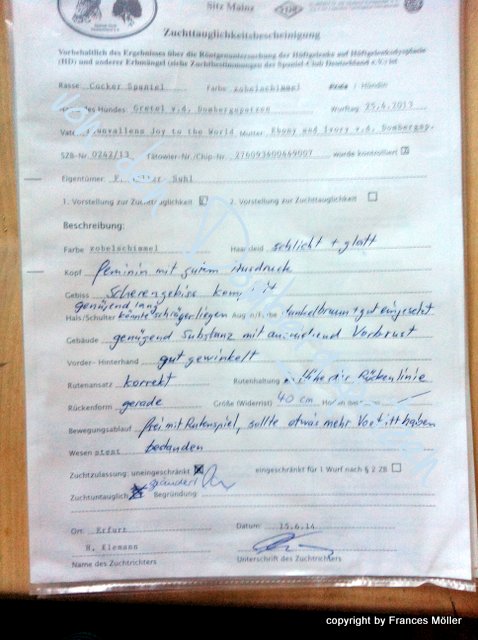 Sitz Mainz
Zuchttauglichkeitsbescheinigung
Vorbehaltlich des Ergebnisses über die Röntgenuntersuchung der Hüftgelenke auf Hüftgelenksdysplasie
(HD) und anderer Erbmängel (siehe Zuchtbestimmungen des Spaniel-Club Deutschland e.V.) ist
Rasse Cocker Spaniel Farbe zobelschimmel Hündin
des Hundes Gretel v.d. Dombergspatzen Wurftag 25.4.2013
Vater Joy to the World Mutter Ebony and Ivory v.d. Dombergsp.
SZB-Nr. 0242/13 Tätowier-Nr./Chip-Nr. 276093400469007 wurde kontrolliert
Eigentümer Suhl
1. Vorstellung zur Zuchttauglichkeit 2. Vorstellung zur Zuchttauglichkeit
Beschreibung:
Farbe zobelschimmel Haarkleid schlicht + glatt
Kopf feminin mit gutem Ausdruck
Gebiss Scherengebiss komplett
genügend lang
Hals/Schulter könnte schräger liegen dunkelbraun + gut eingesetzt
Gebäude genügend Substanz mit ausreichend Vorbrust
Vorder- Hinterhand gut gewinkelt
Rutenansatz korrekt Rutenhaltung Höhe der Rückenlinie
Rückenform gerade Größe (Widerrist) 40 cm
Bewegungsablauf frei mit Rutenspiel, sollte etwas mehr Vortritt haben
Wesen bestanden
Zuchtzulassung: uneingeschränkt eingeschränkt für 1 Wurf nach § 2 ZB
geändert
Zuchtuntauglich Begründung:
Ort: Erfurt Datum: 15.6.14
H. Klemann
Name des Zuchtrichters Unterschrift des Zuchtrichters
copyright by Frances Möller